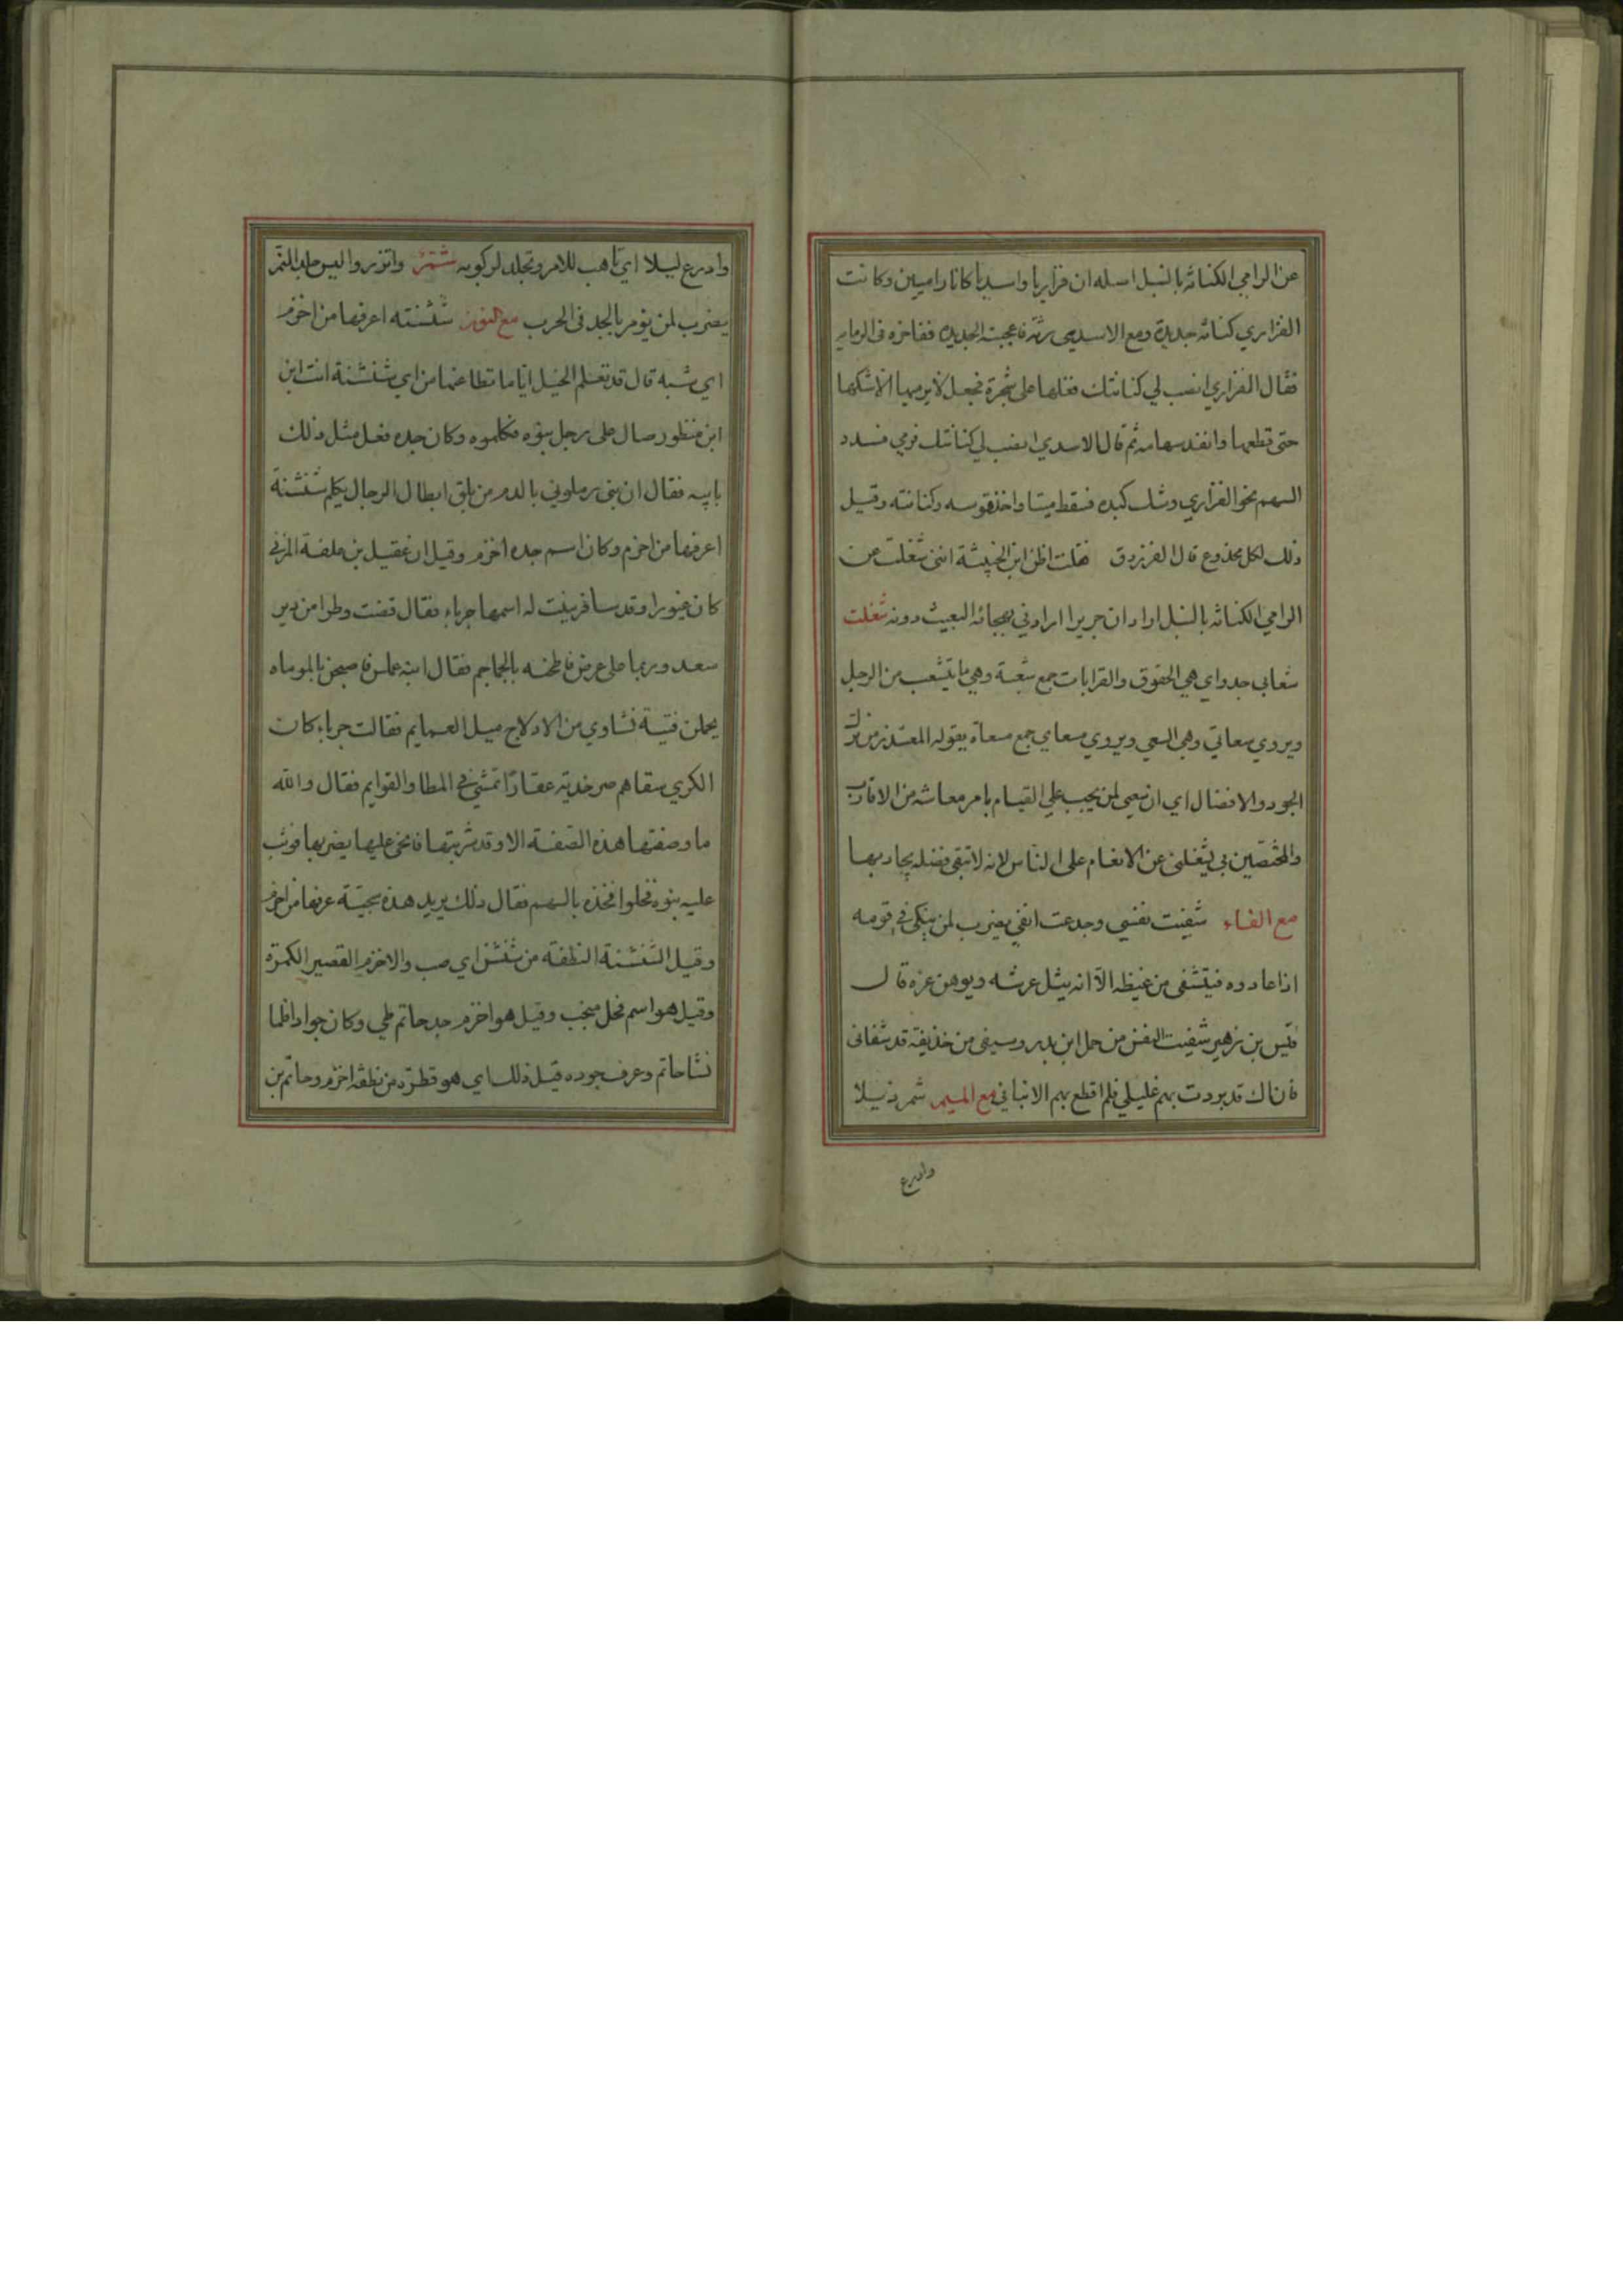 عن الرامي الكنانة بالنبل اصله ان فزاريا واسديا كانا راميين وكانت
الفزاري كنانة جديدة ومع الاسدي رثة فاعجبته الجديدة ففاخره في الرماية
فقال الفزاري انصب لي كنانتك فعلقها على شجرة فجعل لا يرميها الا شكها
حتى قطعها وانفد سهامه ثم قال الاسدي انصب لي كنانتك فرمي فسدد
السهم نحو الفزاري وشك كبده فسقط ميتا واخذ قوسه وكنانته وقيل
ذلك لكل مخدوع قال الفرزدق فقلت اظن ابن الخبيثة انني شغلت عن
الرامي الكنانة بالنبل اراد ان جريرا ارادني بهجائه البعيث دونه شغلت
شعابي جدواي هي الحقوق والقرابات جمع شعبة وهي ما يتشعب من الرجل
ويروي سعاتي وهي السعي ويروي مساعي جمع مسعاة يقوله المعتذر من ترك
الجود والافضال اي ان سعيي لمن يجب علي القيام بامر معاشه من الاقارب
والمختصين بي يشغلني عن الانعام على الناس لانه لا تبقى فضلة يجاد بها
مع الفاء شفيت نفسي وجدعت انفي يضرب لمن ينكى في قومه
اذا عادوه فيتشفى من غيظه الا انه يثل عرشه ويوهن عزه قال
قيس بن زهير شفيت النفس من حمل ابن بدر وسيفي من حذيفة قد شفاني
فان اك قد بردت بهم غليلي فلم اقطع بهم الا بناني مع الميم شمر ذيلا
وادرع
وادرع ليلا اي تاهب للامر وتجلد لركوبه شمر واتزر والبس جلد النمر
يضرب لمن يؤمر بالجد في الحرب مع النون شنشنة اعرفها من اخزم
اي شبه قال قد تعلم الخيل اياما تطاعنها من اي شنشنة انت ابن
ابن منظور صال على رجل بنوه فكلموه وكان جده فعل مثل ذلك
بابيه فقال ان بني رملوني بالدم من يلق ابطال الرجال يكلم شنشنة
اعرفها من اخزم وكان اسم جده اخزم وقيل ان عقيل بن علفة المزني
كان غيورا وقد سافر ببنت له اسمها جرباء فقال قضت وطرا من دير
سعد وربما على عرض ناطحنه بالجماجم فقال ابنه عملس فاصبحن بالموماه
يحملن فتية نشاوي من الادلاج ميل العمايم فقالت جرباء كان
الكري سقاهم صرخدية عقارا تمشى في المطا والقوايم فقال والله
ما وصفتها هذه الصفة الا وقد شربتها فانحى عليها يضربها فوثب
عليه بنوه فخلوا فخذه بالسهم فقال ذلك يريد هذه سجية عرفها من اخزم
وقيل الشنشنة النطفة من شنشن اي صب والاخزم القصير الكمرة
وقيل هو اسم فحل منجب وقيل هو اخزم جد حاتم طي وكان جوادا فلما
نشا حاتم وعرف جوده قيل ذلك اي هو قطرة من نطفة اخزم وحاتم بن